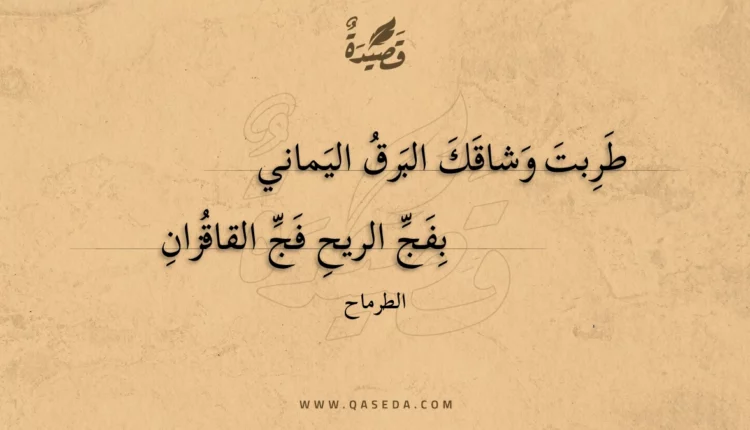 قَصِيْدَةٌ
طَرِبتَ وَشاقَكَ البَرقُ اليَماني
بِفَجِّ الريحِ فَجِّ القاقُزانِ
الطرماح
WWW.QASEDA.COM